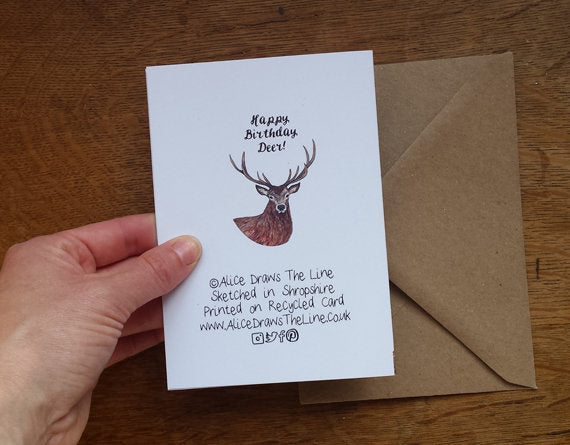 Happy
Birthday
Deer!
©Alice Draws The Line
Sketched in Shropshire
Printed on Recycled Card
www.AliceDrawsTheLine.co.uk